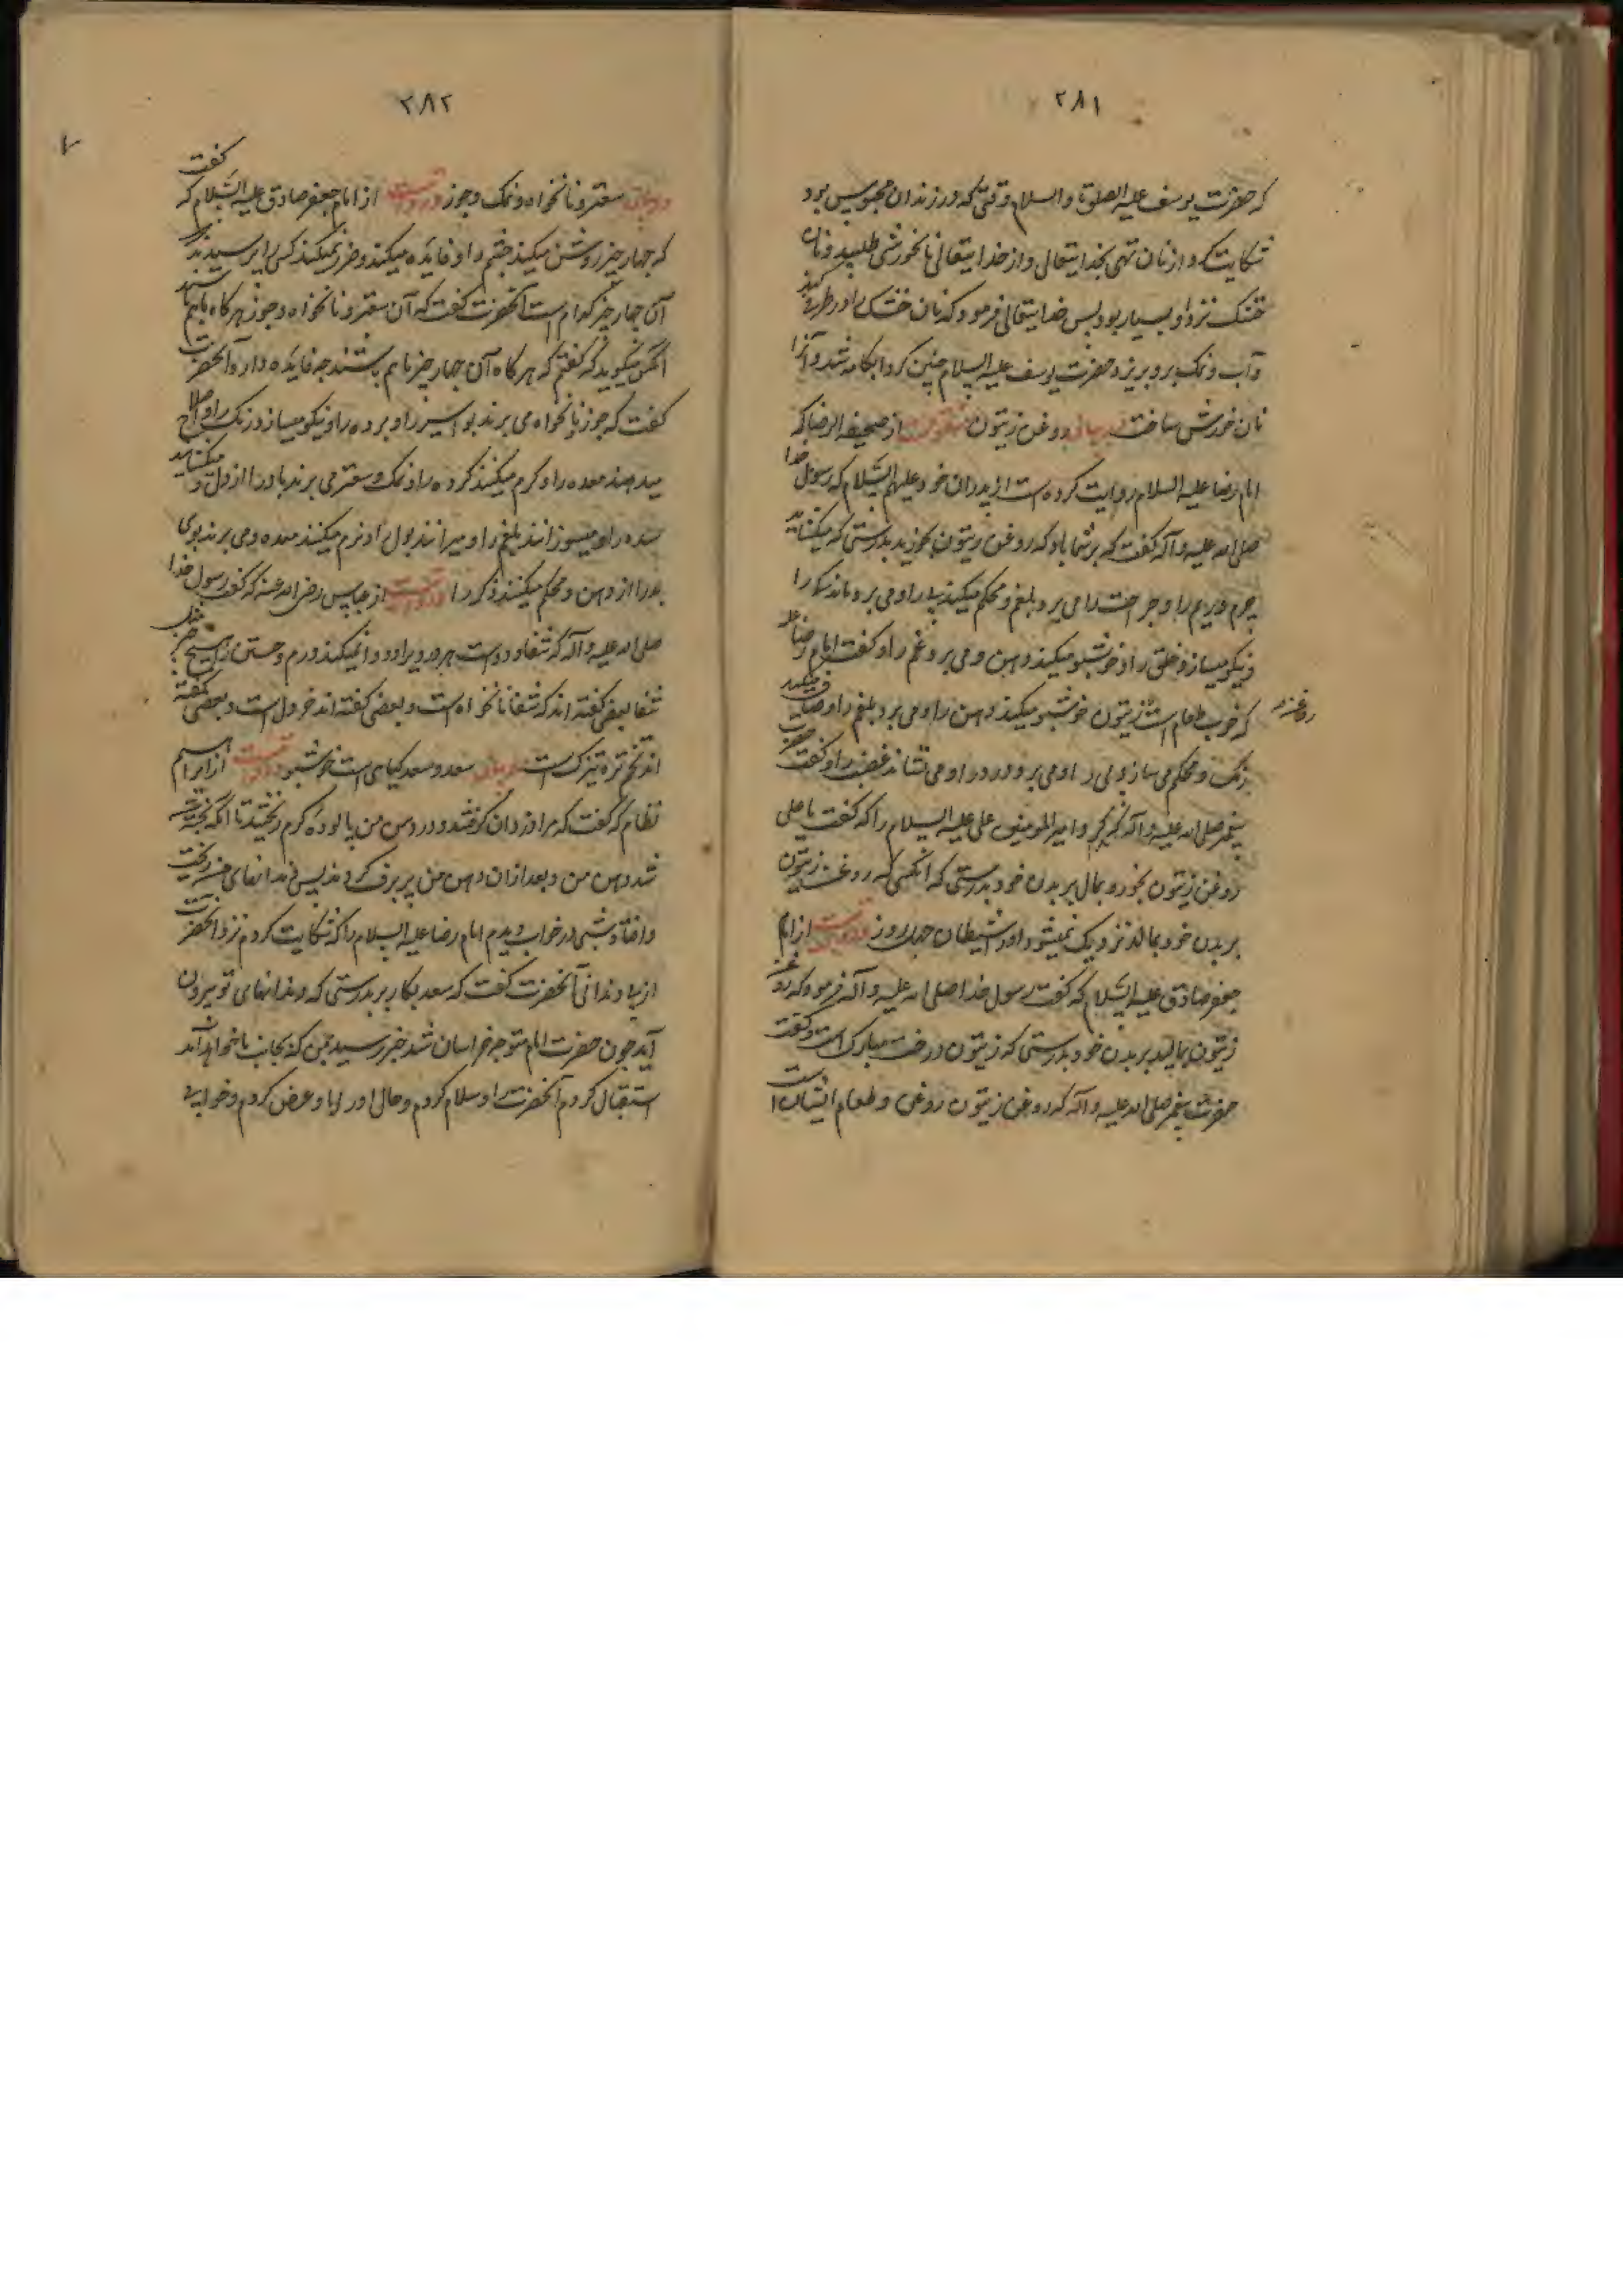 ۲۸۱
که حضرت یوسف علیه الصلوة والسلام وقتی که در زندان محبوس بود
شکایت کرد از نان تهی بخدایتعالی و از خدایتعالی نانخورشی طلبید و نان
خشک نزد او بسیار بود پس خدایتعالی فرمود که نان خشک را در ظرف کند
و آب و نمک برو بریزد حضرت یوسف علیه السلام چنین کرد ابکامه شد و آنرا
نان خورش ساخت در بیان روغن زیتون منقولست از صحیفه الرضا که
امام رضا علیه السلام روایت کرده است از پدران خود علیهم السلام که رسول خدا
صلی الله علیه و آله گفت که بر شما باد که روغن زیتون بخورید بدرستی که میگشاید
را و می برد بلغم و محکم میکند پی را و می برد ماندگی را
و نیکو میسازد خلق را و خوشبو میکند دهن و می برد غم را و گفت امام رضا علیه
که خوب طعام است زیتون خوشبو میکند دهن را و می برد بلغم را و صاف میکند
روغن
رنگ و محکم می سازد پی را و می برد درد را و می نشاند غضب را و گفت حضرت
پیغمبر صلی الله علیه و آله امیر المومنین علی علیه السلام را که گفت یا علی
روغن زیتون بخور و بمال بر بدن خود بدرستی که آنکسی که روغن زیتون
بر بدن خود بمالد نزدیک نمیشود او را شیطان چهل روز در روایتست از امام
جعفر صادق علیه السلام که گفت رسول خدا صلی الله علیه و آله فرمود که روغن
زیتون بمالید بر بدن خود بدرستی که زیتون درخت مبارک است و گفت
حضرت پیغمبر صلی الله علیه و آله که روغن زیتون روغن و طعام ایشانست
۲۸۲
در بیان سعتر و نانخواه و نمک و جوز در روایتست از امام جعفر صادق علیه السلام که گفت
که چهار چیز روشن میکند چشم را و فایده میکند و ضرر نمیکند کسی پرسید
آن چهار چیز کدام است آنحضرت گفت که آن سعتر و نانخواه و جوز هرگاه باهم باشند
آنکس میگوید که گفتم که هرگاه آن چهار چیز باهم باشند چه فایده دارد آنحضرت
گفت که جوز و نانخواه می برند بواسیر را و برده را و نیکو میسازد رنگ را و اصلاح
میدهند معده را و گرم میکنند گرده را و نمک و سعتر می برند باد را از دل و میگشایند
سده را و میسوزانند بلغم را و میرانند بول را و نرم میکنند معده و می برند بوی
بد را از دهن و محکم میکنند ذکر را در روایتست از عباس رضی الله عنه که گفت رسول خدا
صلی الله علیه و آله که شفا و دو است
شفا بعضی گفته اند که شفا نانخواه است و بعضی گفته اند خردل است و بعضی گفته
اند تخم تره تیزک است در بیان سعد و سعد گیاهی است خوشبو در روایتست از ابراهیم
نظام که گفت که مرا دزدان گرفتند و در دهن من پالوده گرم ریختند تا آنکه پخته
شد دهن من و بعد از آن دهن من پر برف کردند پس دندانهای من ریخت
و افتاد شبی در خواب دیدم امام رضا علیه السلام را که شکایت کردم نزد آنحضرت
از بی دندانی آنحضرت گفت که سعد بکار بر بدرستی که دندانهای تو بیرون
آید چون حضرت امام متوجه خراسان شد خبر رسید بمن که بجانب ما خواهد آمد
استقبال کردم آنحضرت را و سلام کردم و حال او را با و عرض کردم و خوابی